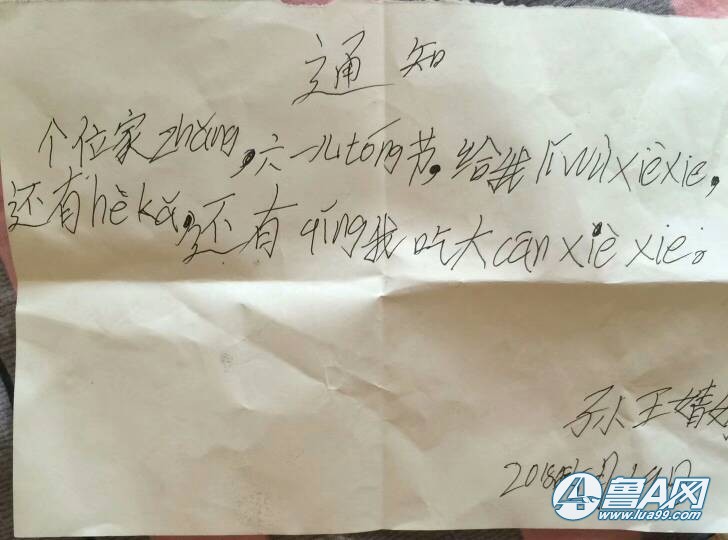 通知
个位家zhǎng,六一儿tóng节,给我lǐwùxièxie,
还有hèkǎ,还有qǐng我吃大cānxièxie。
孙王婧
2018
鲁A网
www.lua99.com